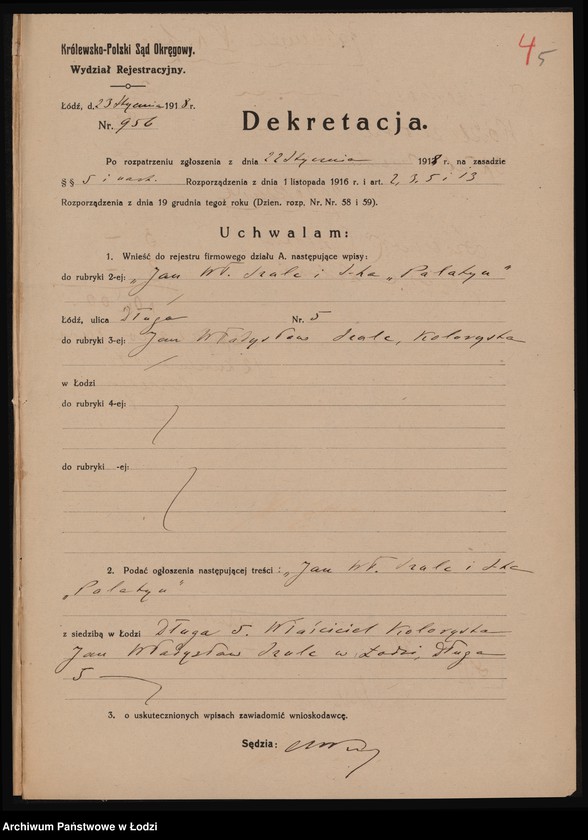 45
Królewsko-Polski Sąd Okręgowy.
Wydział Rejestracyjny.
Łódź, d. 23 Stycznia 1918 r.
Nr. 956
Dekretacja.
Po rozpatrzeniu zgłoszenia z dnia 22 Stycznia 1918 r. na zasadzie
§ § 5 i nast. Rozporządzenia z dnia 1 listopada 1916 r. i art. 2, 3, 5 i 13
Rozporządzenia z dnia 19 grudnia tegoż roku (Dzien. rozp. Nr. Nr. 58 i 59).
Uchwalam:
1. Wnieść do rejestru firmowego działu A. następujące wpisy:
do rubryki 2-ej: „Jan Wł. i S-ka „Palatyn"
Łódź, ulica Długa Nr. 5
do rubryki 3-ej: Jan Władysław Kolorysta
w Łodzi
do rubryki 4-ej:
do rubryki -ej:
2. Podać ogłoszenia następującej treści: „Jan Wł. i S-ka
„Palatyn"
z siedzibą w Łodzi Długa 5. Właściciel Kolorysta
Jan Władysław w Łodzi, Długa
5
3. o uskutecznionych wpisach zawiadomić wnioskodawcę.
Sędzia:
Archiwum Państwowe w Łodzi